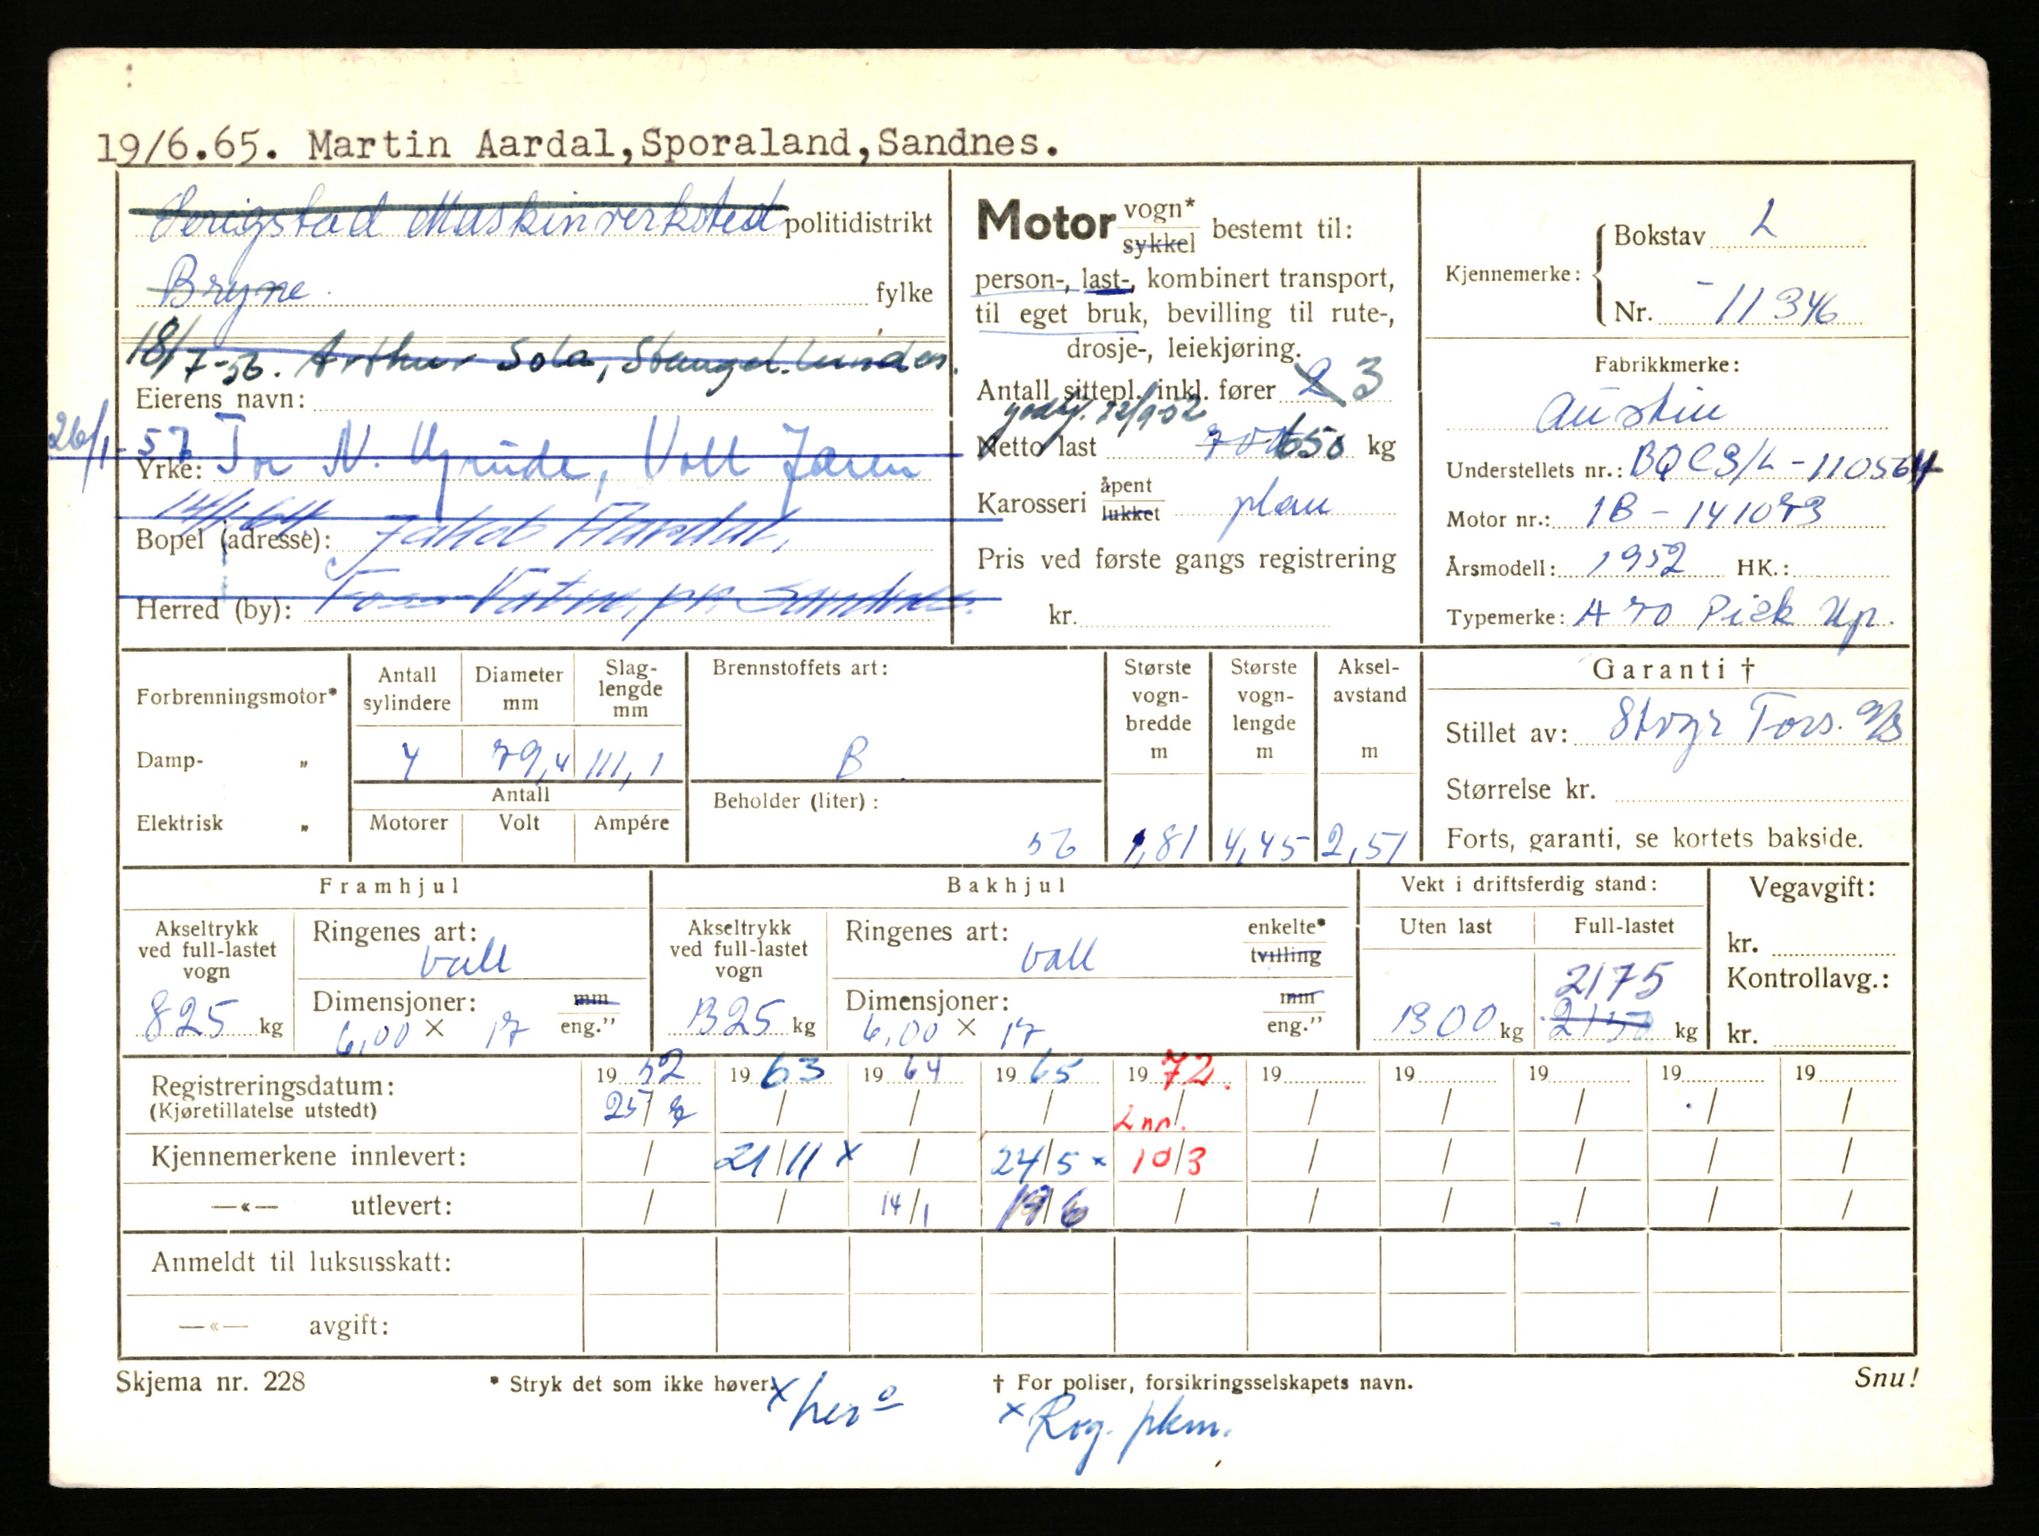 19/6.65. Martin Aardal,Sporaland,Sandnes.
Serigstad Maskinverksted politidistrikt
Bryne fylke
18/7-56. Arthur Sola, Stangel.
Eierens navn:
26/1-57
Yrke: Tor N. Vold Jæren
14/1 64
Bopel (adresse): Jakob Aardal,
Herred (by): Foss-Vatne, pr. Sandnes.
Motor vogn* sykkel bestemt til:
person-, last-, kombinert transport,
til eget bruk, bevilling til rute-,
drosje-, leiekjøring.
Antall sittepl. inkl. fører 2 3
godkj. 22/9-52
Netto last 700 650 kg
Karosseri åpent lukket plan
Pris ved første gangs registrering
kr.
Kjennemerke: Bokstav L
Nr. -11346
Fabrikkmerke:
Austin
Understellets nr.: BQCS/L-110564
Motor nr.: 1B-141073
Årsmodell: 1952 HK.:
Typemerke: A 70 Pick Up.
Forbrenningsmotor*
Damp- „
Elektrisk „
Antall sylindere
4
Diameter mm
79,4
Slaglengde mm
111,1
Antall
Motorer Volt Ampére
Brennstoffets art:
B
Beholder (liter):
56
Største vogn-bredde m
1,81
Største vogn-lengde m
4,45
Aksel-avstand m
2,51
Garanti †
Stillet av: Stvgr Fors. A/S
Størrelse kr.
Forts, garanti, se kortets bakside.
Framhjul
Akseltrykk ved full-lastet vogn
825 kg
Ringenes art:
ball
Dimensjoner: mm
6,00 × 17 eng."
Bakhjul
Akseltrykk ved full-lastet vogn
1325 kg
Ringenes art: enkelte* tvilling
ball
Dimensjoner: mm
6,00 × 17 eng."
Vekt i driftsferdig stand:
Uten last Full-lastet
2175
1300 kg 2150 kg
Vegavgift:
kr.
Kontrollavg.:
kr.
Registreringsdatum: 19 52 19 63 19 64 19 65 19 72. 19 19 19 19 19
(Kjøretillatelse utstedt) 25/2 / / / L nr. / / / / / /
Kjennemerkene innlevert: / 21/11 x / 24/5 x 10/3 / / / / /
—«— utlevert: / / 14/1 19/6 / / / / / /
Anmeldt til luksusskatt:
—«— avgift:
Skjema nr. 228 * Stryk det som ikke høver. † For poliser, forsikringsselskapets navn. Snu!
x her
x Rog. pkm.